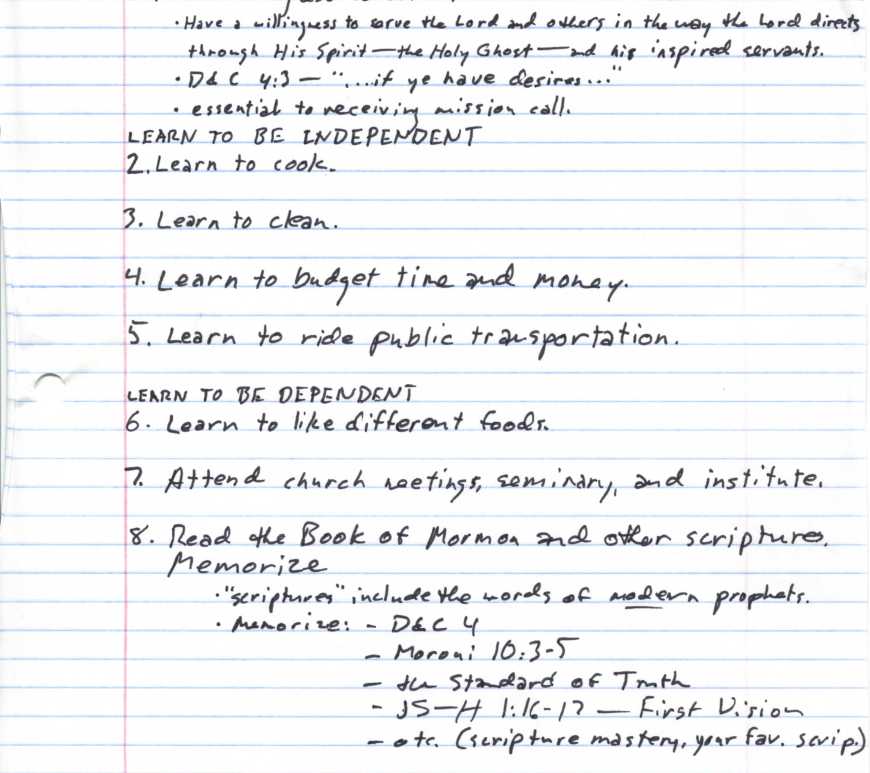 • Have a willingness to serve the Lord and others in the way the Lord directs
through His Spirit—the Holy Ghost—and his inspired servants.
• D&C 4:3 — "....if ye have desires..."
• essential to receiving mission call.
LEARN TO BE INDEPENDENT
2. Learn to cook.
3. Learn to clean.
4. Learn to budget time and money.
5. Learn to ride public transportation.
LEARN TO BE DEPENDENT
6. Learn to like different foods.
7. Attend church meetings, seminary, and institute.
8. Read the Book of Mormon and other scriptures.
Memorize
• "scriptures" include the words of modern prophets.
• Memorize: - D&C 4
- Moroni 10:3-5
- the Standard of Truth
- JS-H 1:16-17 — First Vision
- etc. (scripture mastery, your fav. scrip.)